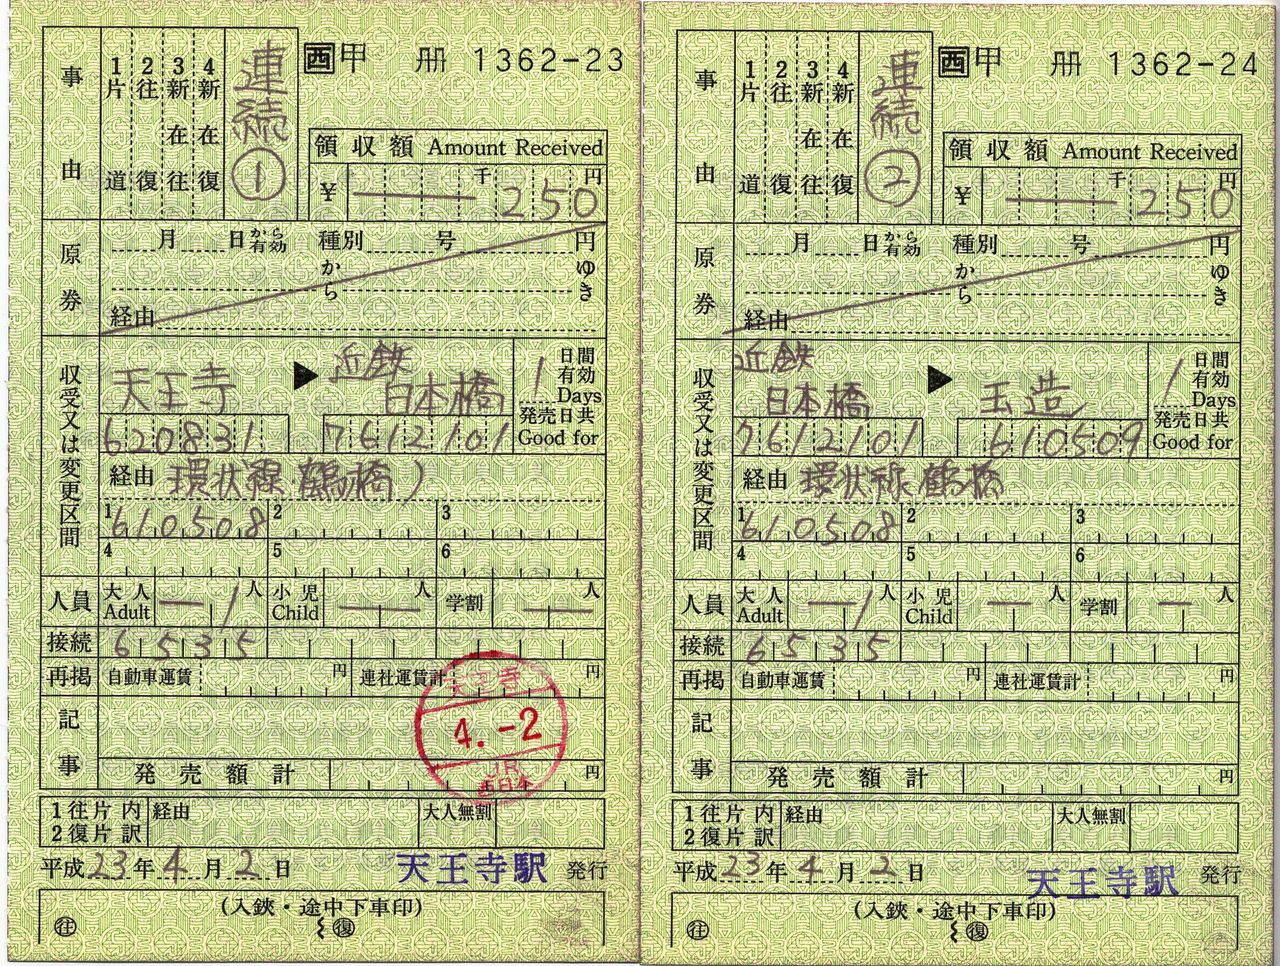 事由
1片道
2往復
3新在往
4新在復
連続①
西 甲 冊 1362-23
領収額 Amount Received
¥ 千 250 円
原券
月 日から有効 種別 号 円
から ゆき
経由
収受又は変更区間
天王寺 ▶ 近鉄日本橋
1日間有効 Days
620831 7612101
発売日共 Good for
経由 環状線 鶴橋)
1 610508 2 3
4 5 6
人員 大人 Adult 1人 小児 Child 人 学割 人
接続 6535
再掲 自動車運賃 円 連社運賃計 円
天王寺
4.-2
JR
西日本
記事
発売額計 円
1往片 内 経由 大人無割
2復片 訳
平成23年4月2日 天王寺駅 発行
(入鋏・途中下車印)
往 復
事由
1片道
2往復
3新在往
4新在復
連続②
西 甲 冊 1362-24
領収額 Amount Received
¥ 千 250 円
原券
月 日から有効 種別 号 円
から ゆき
経由
収受又は変更区間
近鉄日本橋 ▶ 玉造
1日間有効 Days
7612101 610509
発売日共 Good for
経由 環状線 鶴橋
1 610508 2 3
4 5 6
人員 大人 Adult 1人 小児 Child 人 学割 人
接続 6535
再掲 自動車運賃 円 連社運賃計 円
記事
発売額計 円
1往片 内 経由 大人無割
2復片 訳
平成23年4月2日 天王寺駅 発行
(入鋏・途中下車印)
往 復